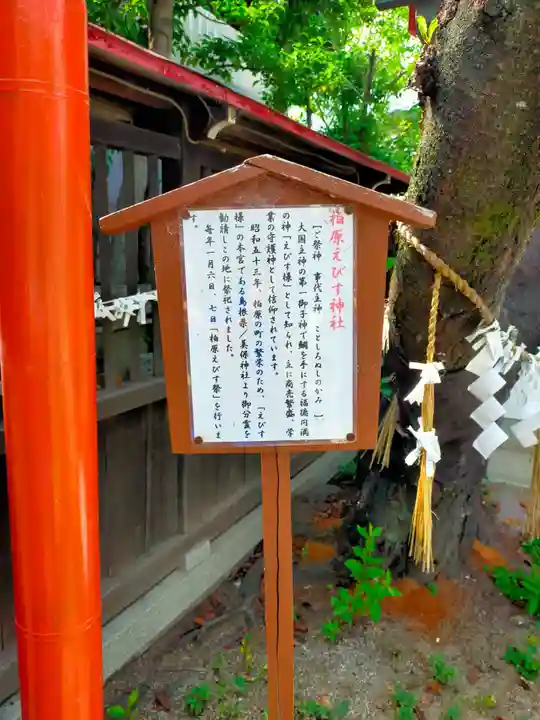 柏原えびす神社
【ご祭神　事代主神　ことしろぬしのかみ　】
大国主神の第一御子神で鯛を手にする福徳円満
の神「えびす様」として知られ、主に商売繁盛、学
業の守護神として信仰されています。
昭和五十三年、柏原の町の繁栄のため、「えびす
様」の本宮である島根県／美保神社より御分霊を
勧請しこの地に祭祀されました。
毎年一月六日、七日「柏原えびす祭」を行いま
す。